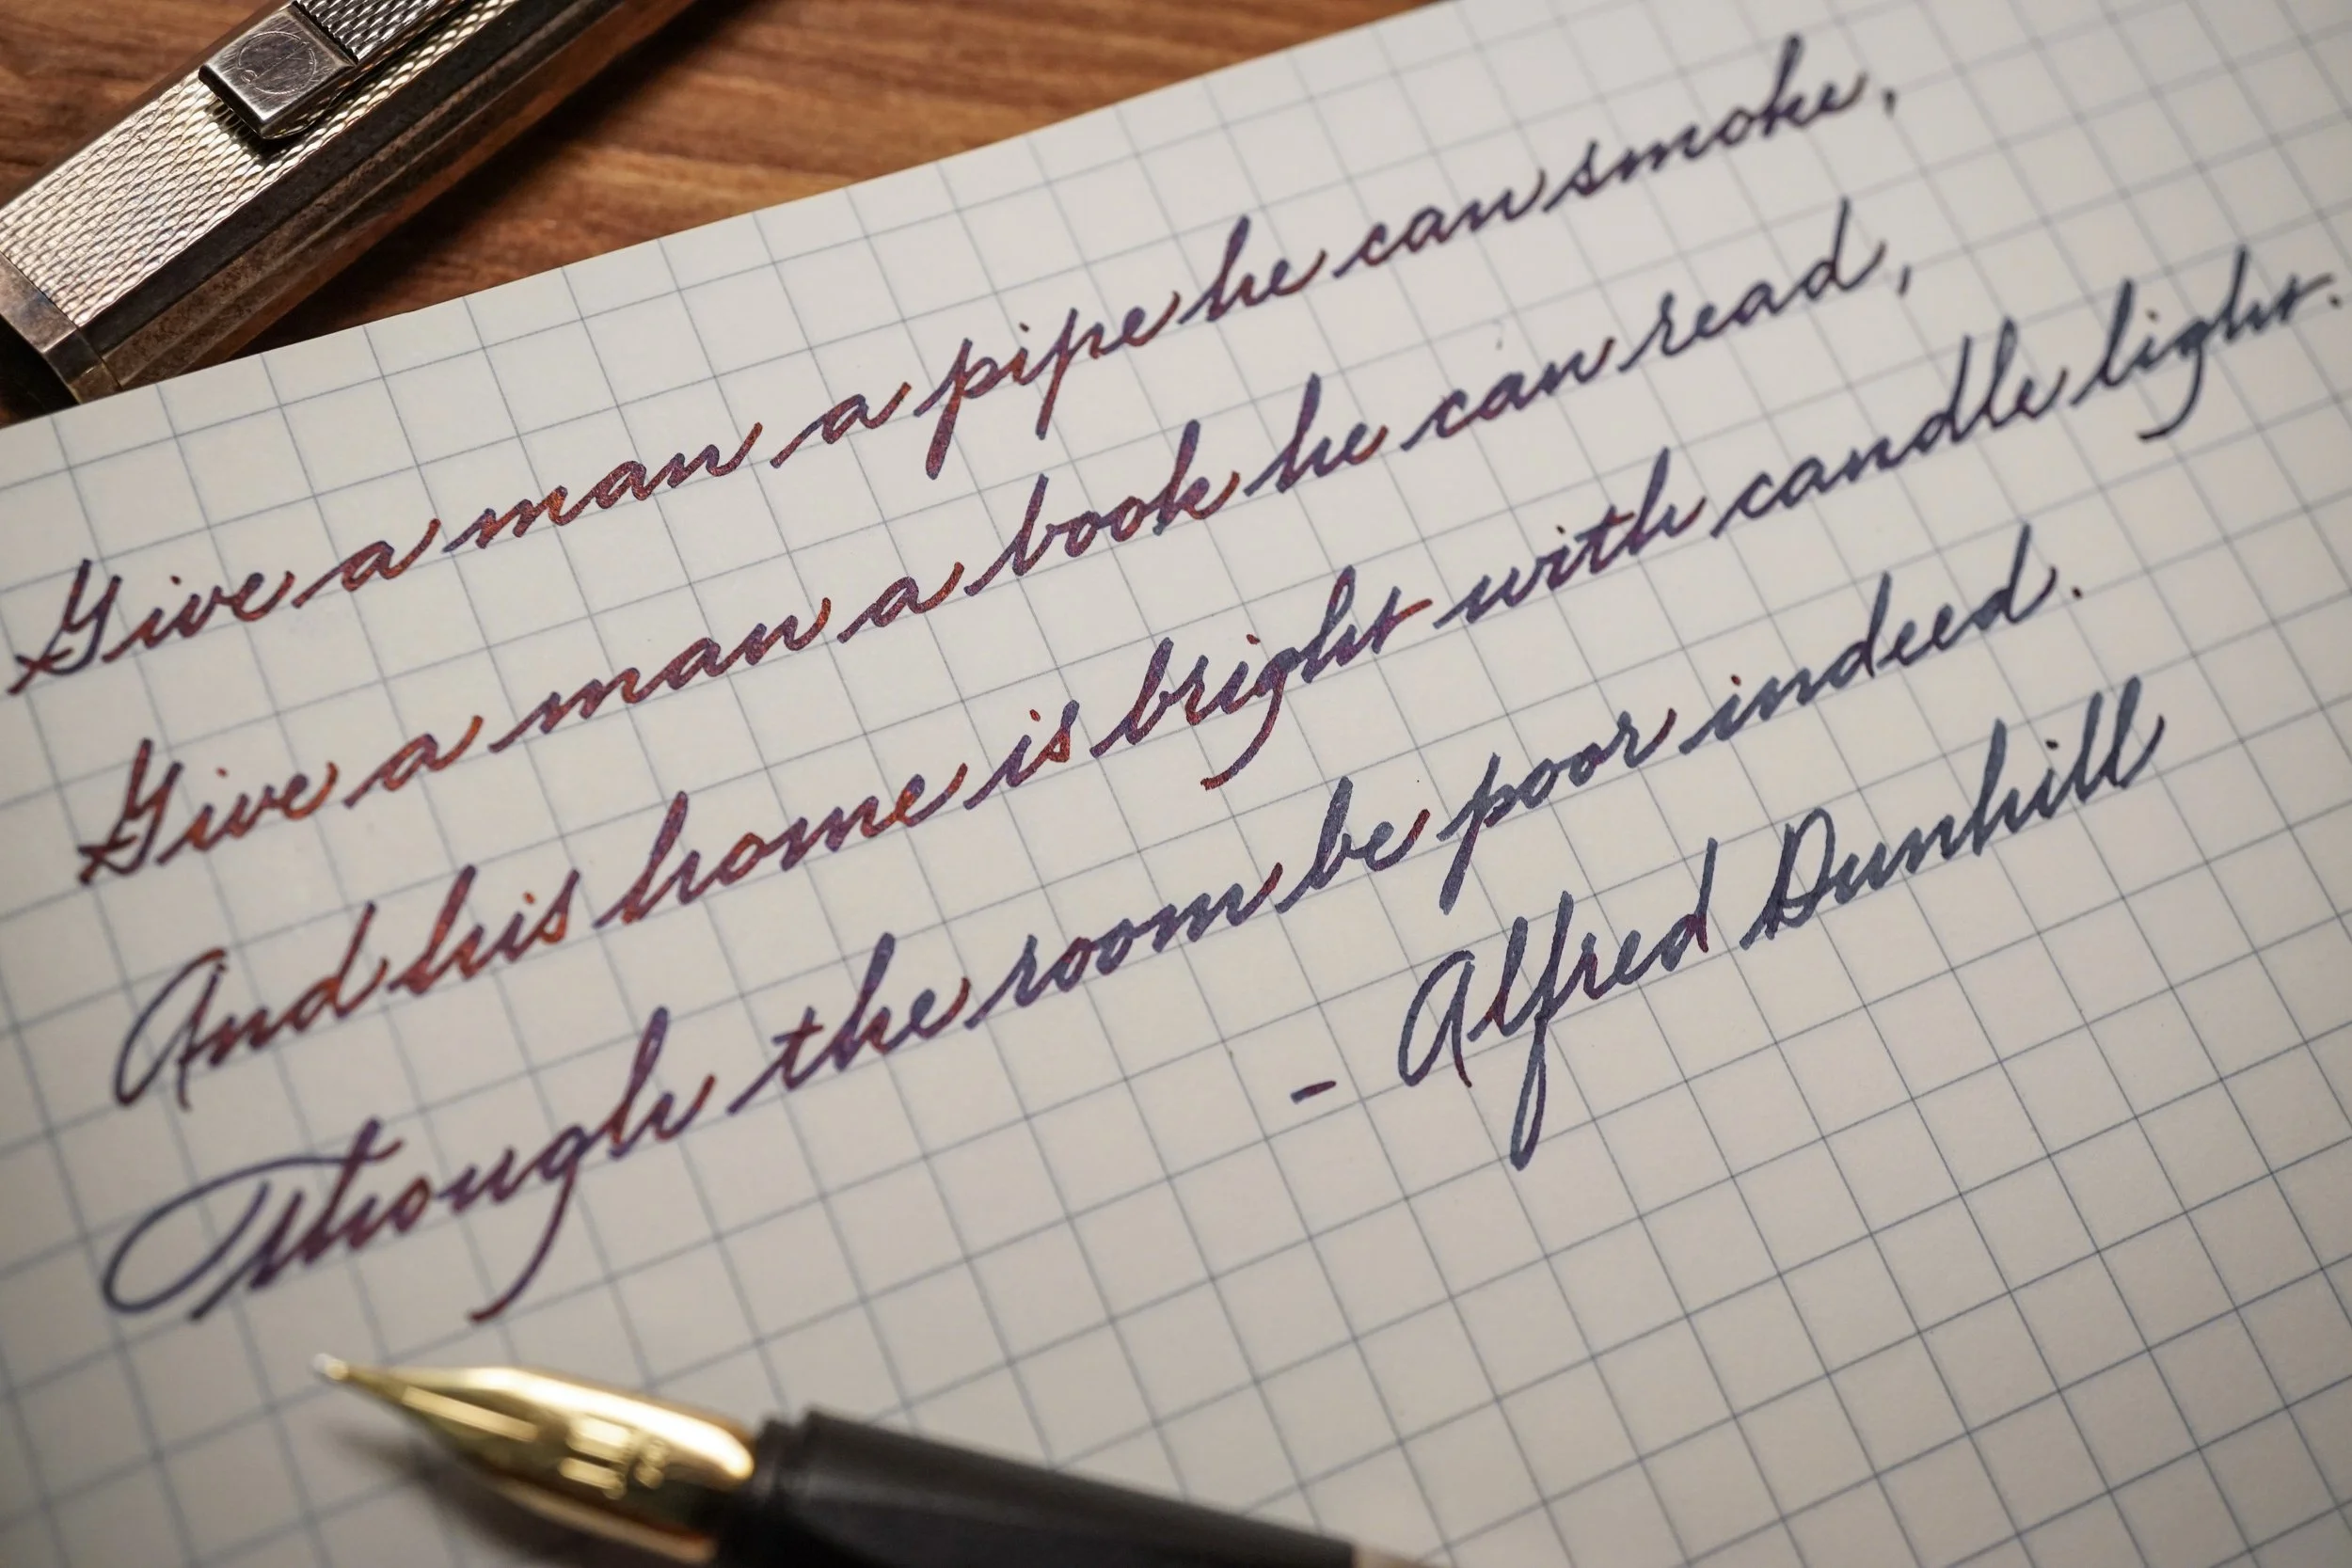 Give a man a pipe he can smoke,
Give a man a book he can read,
And his home is bright with candle light.
Though the room be poor indeed.
- Alfred Dunhill